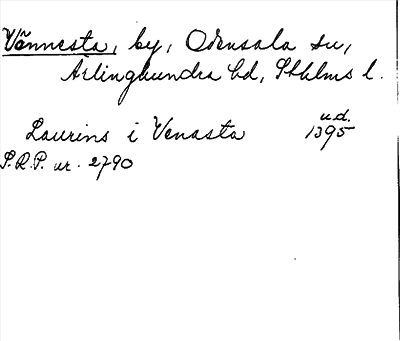 Vännesta, by, Odensala sn,
Ärlinghundra hd, Sthlms l.
Laurins i Venasta u.d. 1395
S.R.P. nr. 2790